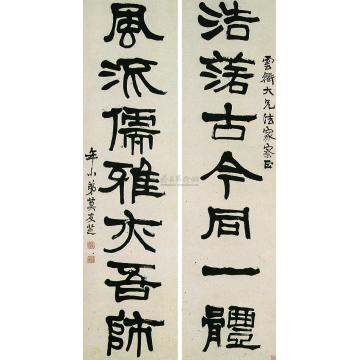 雲衢大兄法家察正
浩蕩古今同一體
風流儒雅亦吾師
年小弟莫友芝